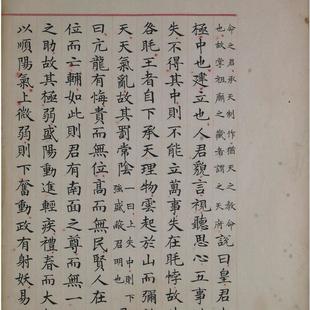 命之君承天制作猶天之教命
也故掌祖廟之藏者謂之天府
說曰皇君
極中也建立也人君貌言視聽思心五事
失不得其中則不能立萬事失在眊悖故
各眊王者自下承天理物雲起於山而彌
天天氣亂故其罰常陰
一曰上失中則下
強盛蔽君明也
曰亢龍有悔貴而無位高而無民賢人在
位而亡輔如此則君有南面之尊而無一
之助故其極弱盛陽動進輕疾禮春而大
以順陽氣上微弱則下奮動政有射妖易